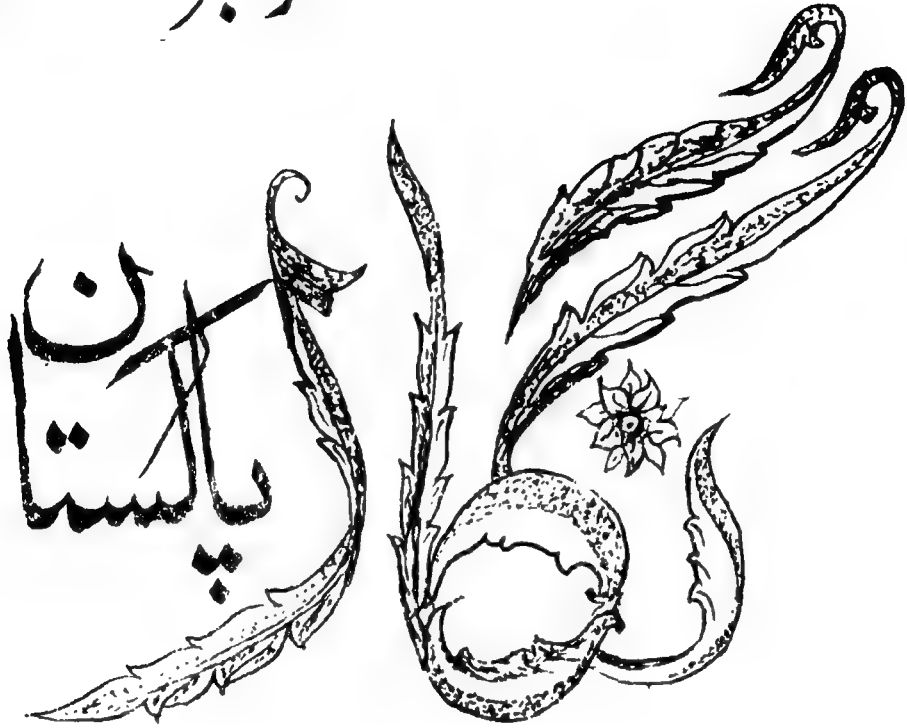 نگار
پاکستان